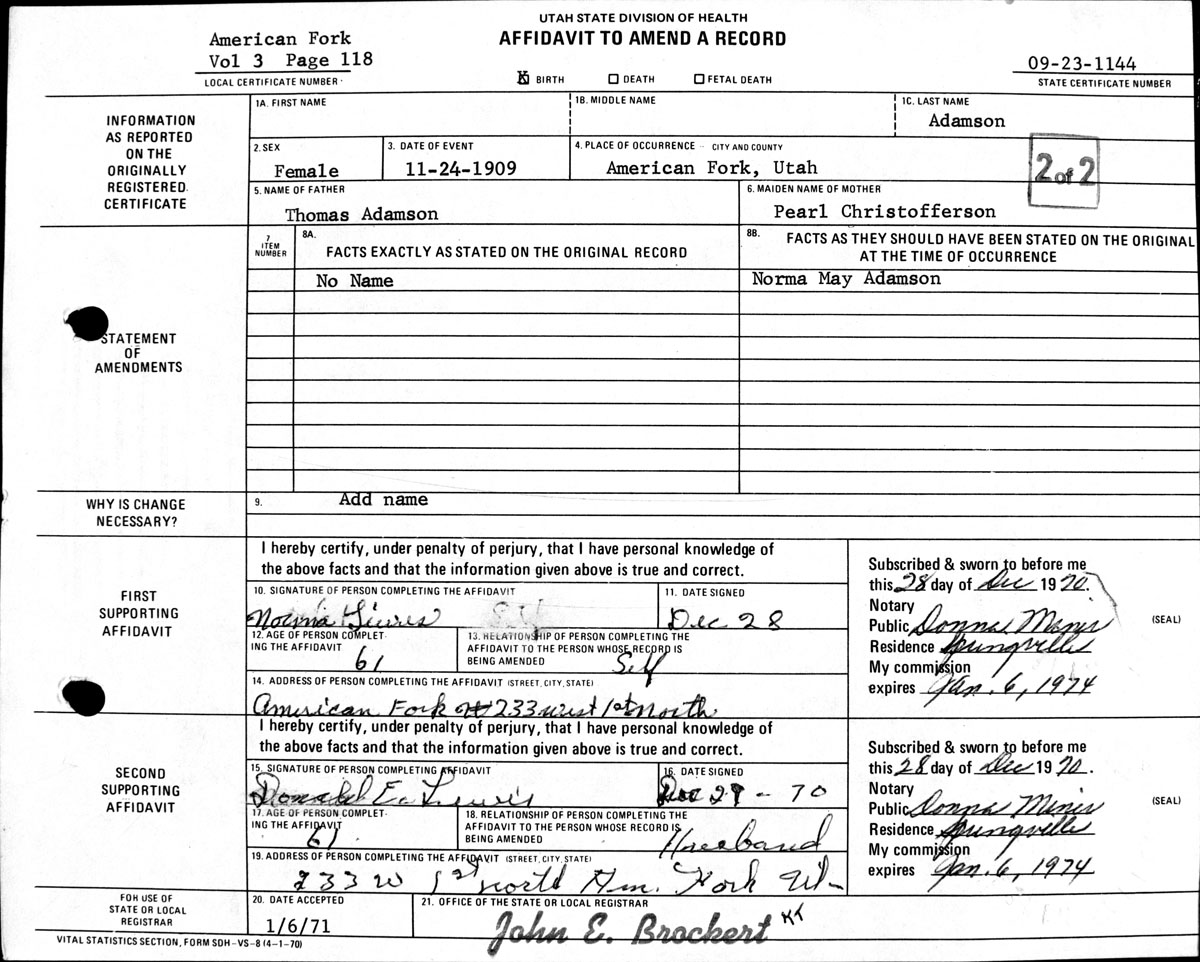 UTAH STATE DIVISION OF HEALTH
AFFIDAVIT TO AMEND A RECORD
American Fork
Vol 3 Page 118
LOCAL CERTIFICATE NUMBER
X BIRTH ☐ DEATH ☐ FETAL DEATH
09-23-1144
STATE CERTIFICATE NUMBER
INFORMATION
AS REPORTED
ON THE
ORIGINALLY
REGISTERED
CERTIFICATE
1A. FIRST NAME
1B. MIDDLE NAME
1C. LAST NAME
Adamson
2. SEX
Female
3. DATE OF EVENT
11-24-1909
4. PLACE OF OCCURRENCE - CITY AND COUNTY
American Fork, Utah
2 of 2
5. NAME OF FATHER
Thomas Adamson
6. MAIDEN NAME OF MOTHER
Pearl Christofferson
STATEMENT
OF
AMENDMENTS
7
ITEM
NUMBER
8A.
FACTS EXACTLY AS STATED ON THE ORIGINAL RECORD
8B. FACTS AS THEY SHOULD HAVE BEEN STATED ON THE ORIGINAL
AT THE TIME OF OCCURRENCE
No Name
Norma May Adamson
WHY IS CHANGE
NECESSARY?
9. Add name
FIRST
SUPPORTING
AFFIDAVIT
I hereby certify, under penalty of perjury, that I have personal knowledge of
the above facts and that the information given above is true and correct.
10. SIGNATURE OF PERSON COMPLETING THE AFFIDAVIT
Norma Lewis
11. DATE SIGNED
Dec 28
12. AGE OF PERSON COMPLET-
ING THE AFFIDAVIT
61
13. RELATIONSHIP OF PERSON COMPLETING THE
AFFIDAVIT TO THE PERSON WHOSE RECORD IS
BEING AMENDED
Self
14. ADDRESS OF PERSON COMPLETING THE AFFIDAVIT (STREET, CITY, STATE)
American Fork 233 west 1st North
Subscribed & sworn to before me
this 28 day of Dec 1970.
Notary
Public Donna Miner
Residence Springville
My commission
expires Jan. 6, 1974
(SEAL)
SECOND
SUPPORTING
AFFIDAVIT
I hereby certify, under penalty of perjury, that I have personal knowledge of
the above facts and that the information given above is true and correct.
15. SIGNATURE OF PERSON COMPLETING AFFIDAVIT
Donald E. Lewis
16. DATE SIGNED
Dec 29 - 70
17. AGE OF PERSON COMPLET-
ING THE AFFIDAVIT
61
18. RELATIONSHIP OF PERSON COMPLETING THE
AFFIDAVIT TO THE PERSON WHOSE RECORD IS
BEING AMENDED
Husband
19. ADDRESS OF PERSON COMPLETING THE AFFIDAVIT (STREET, CITY, STATE)
233 W 1st North Am. Fork Ut-
Subscribed & sworn to before me
this 28 day of Dec 1970.
Notary
Public Donna Miner
Residence Springville
My commission
expires Jan. 6, 1974
(SEAL)
FOR USE OF
STATE OR LOCAL
REGISTRAR
20. DATE ACCEPTED
1/6/71
21. OFFICE OF THE STATE OR LOCAL REGISTRAR
John E. Brockert KT
VITAL STATISTICS SECTION, FORM SDH-VS-8 (4-1-70)